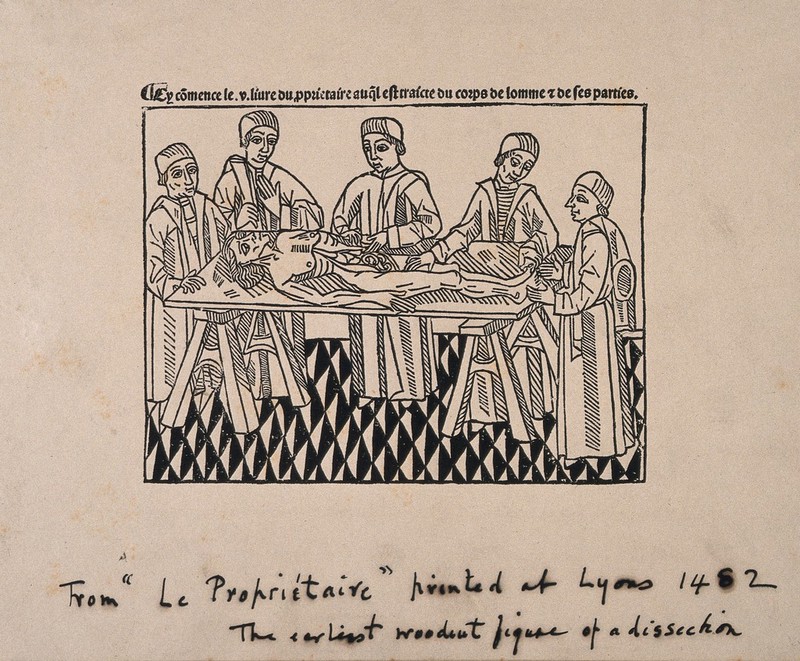 Cy cõmence le .v. liure du ꝓprietaire auq̃l est traicte du corps de lomme ⁊ de ses parties.
From "Le Propriétaire" printed at Lyons 1482
The earliest woodcut figure of a dissection